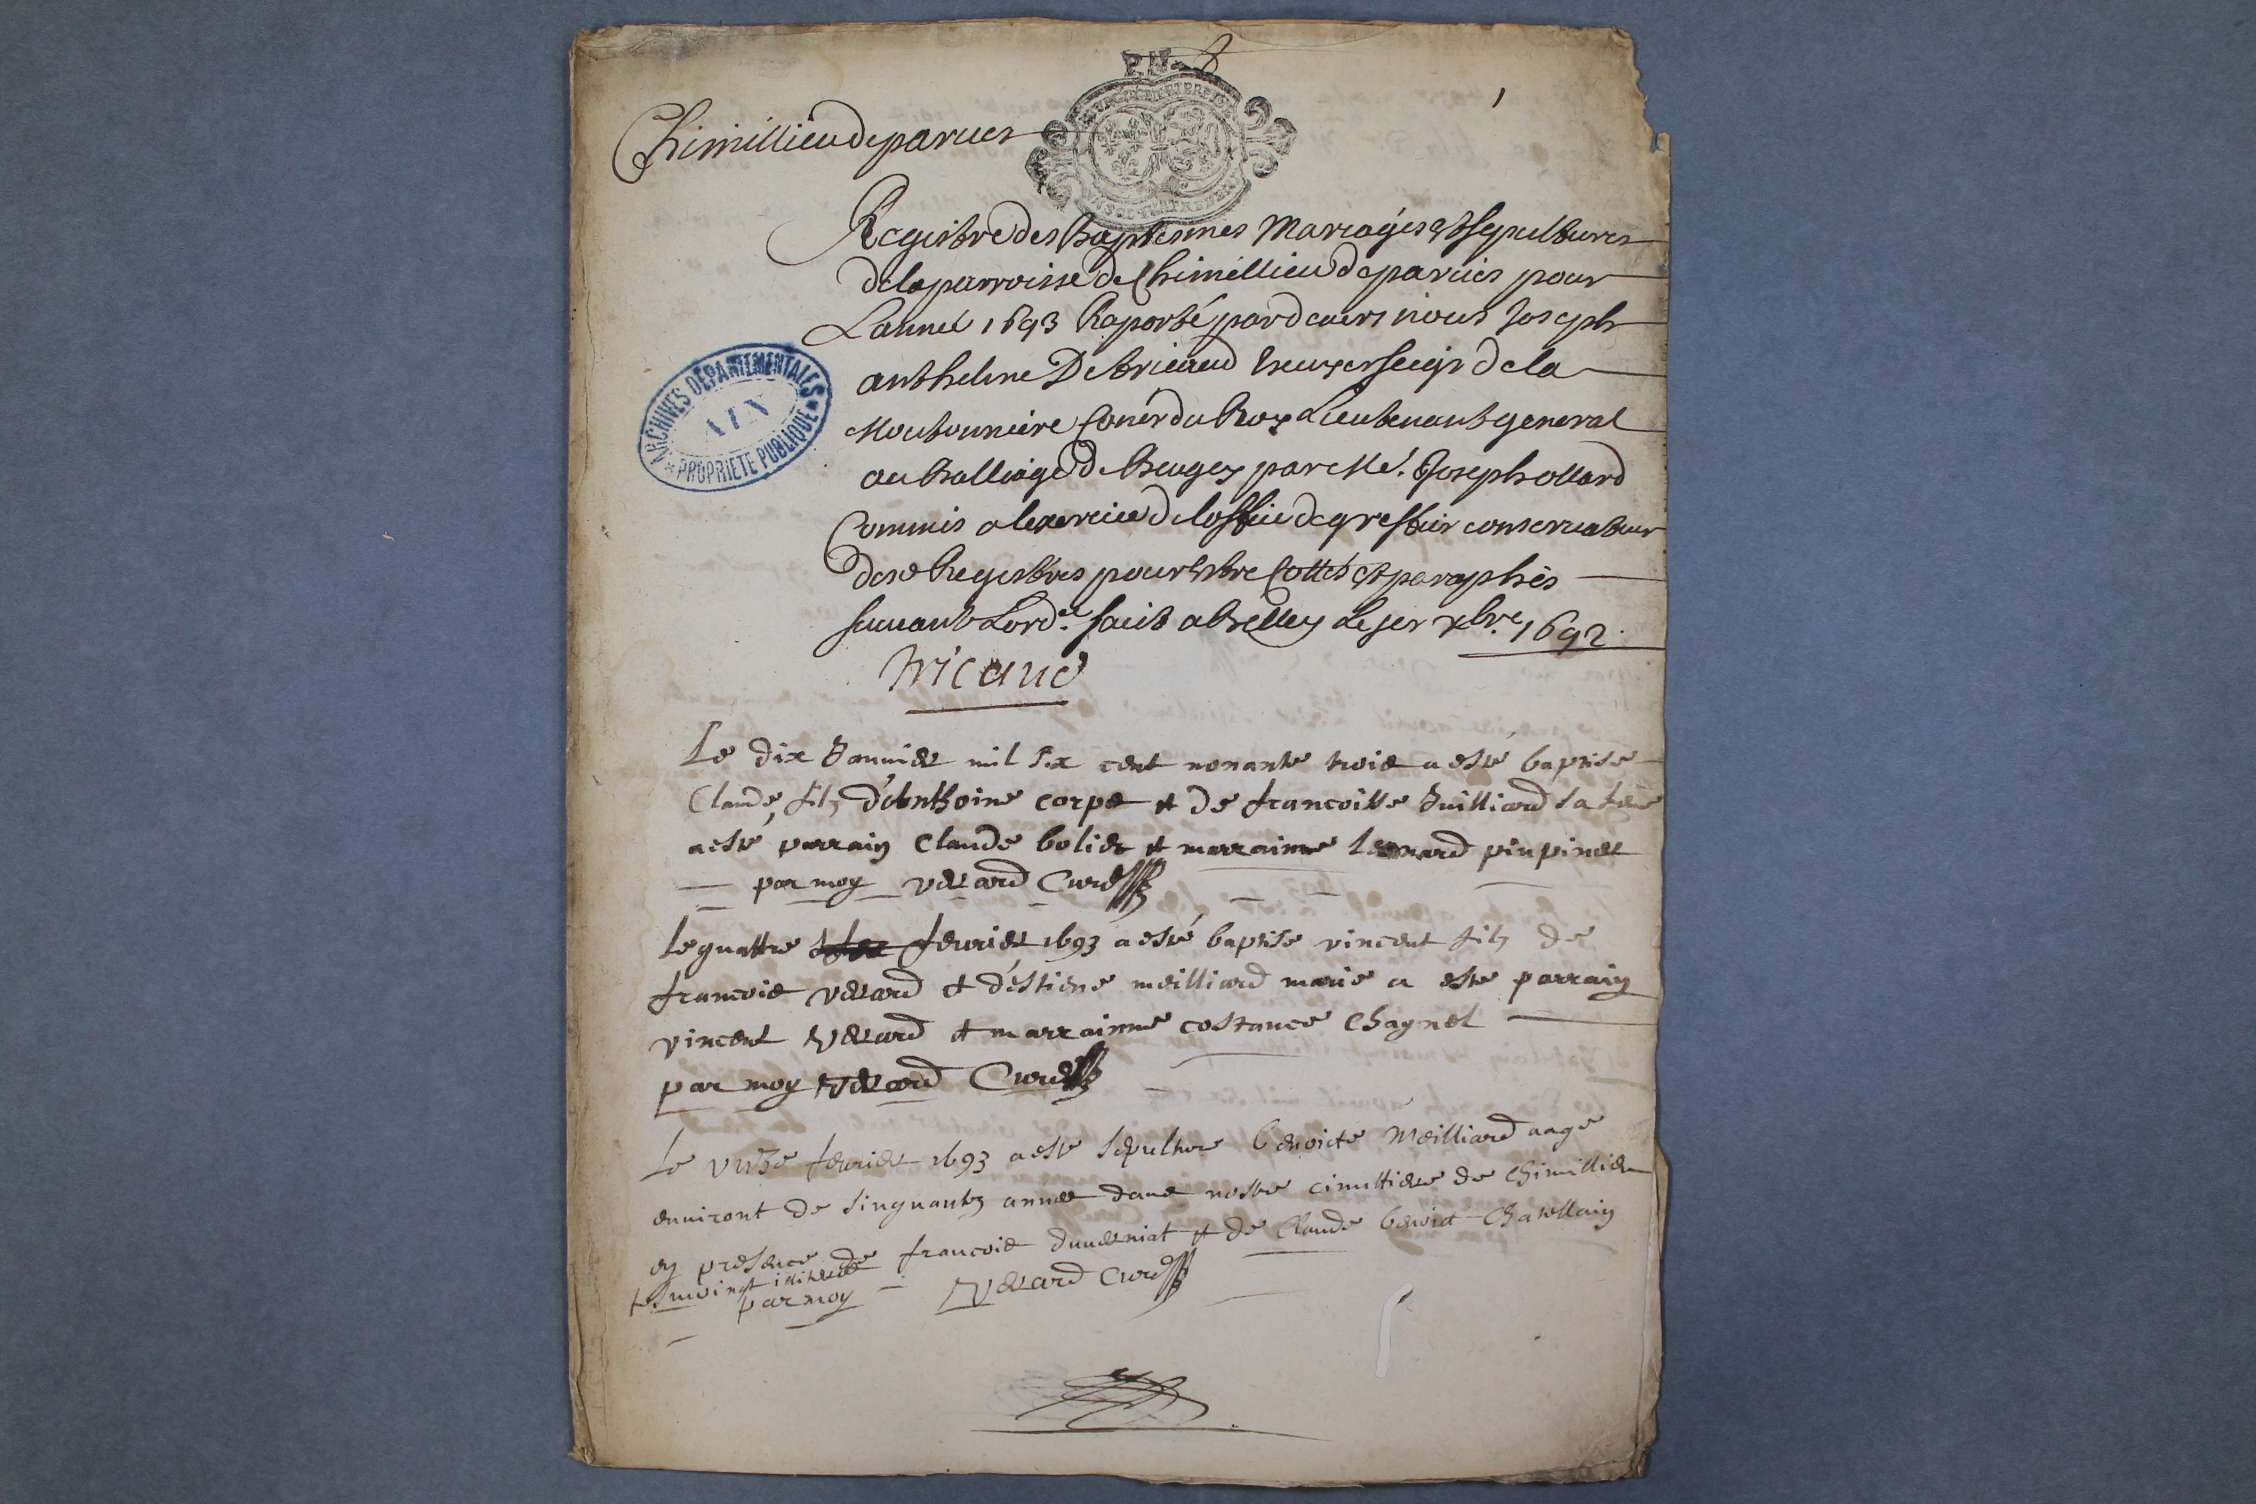 1
Chimillieu de parues
Registre des Baptesmes Mariages et sepultures
de la parroisse de Chimillieu de parues pour
Lannee 1693 Raporté pardevers nous Joseph
anthelme De bricaud Escuyer seigr de la
Moutonniere Coner du Roy Lieutenant general
au Balliage de Beugey par Me. Joseph ollard
Commis a lexercice de loffice de greffier conservateur
desd Registres pour Estre Cottés et paraphés
suivant Lorde. faict a Belley Le 1er xbre. 1692.
bricaud
ARCHIVES DÉPARTEMENTALES
AIN
PROPRIÉTÉ PUBLIQUE
Le dix Janvier mil six cent nonante trois a esté baptise
Claude, filz d'Anthoine Corps et de francoisse Juilliard
a esté parrain Claude bolier et marrainne Leonard pinpinet
par moy Verard Curé
Le quattre fevrier 1693 a esté baptise vincent filz de
francois verard et d'estiene meilliard marie a esté parrain
vincent Verard et marrainne costance Chagnel
par moy Verard Curé
Le unze fevrier 1693 a este sepulture benoicte Meilliard aage
environt de sinquante annee dans nostre cimittiere de Chimillieu
en presence de francois duverniat et de Claude benoict Chatellain
tesmoings illiterés
par moy Verard Curé